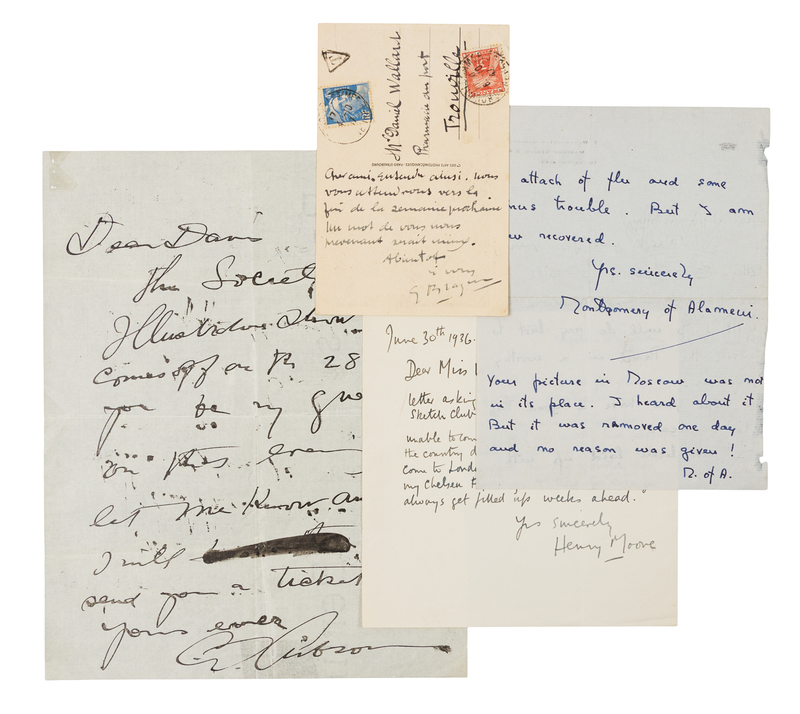 Dear Davis
The Society
Illustrators Show
comes off on the 28
you be my gue
on this even
let me know an
I will
send you a ticket
Yours ever
C. Gibson
Mr Daniel Wallart
Pharmacie du port
Trouville
Cher ami, entendu ainsi. nous
vous attendrons vers la
fin de la semaine prochaine
Un mot de vous nous
prevenant serait mieux.
Abientot
à vous
June 30th 1936.
Dear Miss
letter asking
Sketch Club
unable to com
the country d
come to Londo
my Chelsea
always get filled up weeks ahead.
Yrs sincerely
Henry Moore
attack of flu and some
trouble. But I am
recovered.
Yrs. sincerely
Montgomery of Alamein.
Your picture in Moscow was not
in its place. I heard about it
But it was removed one day
and no reason was given!
M. of A.